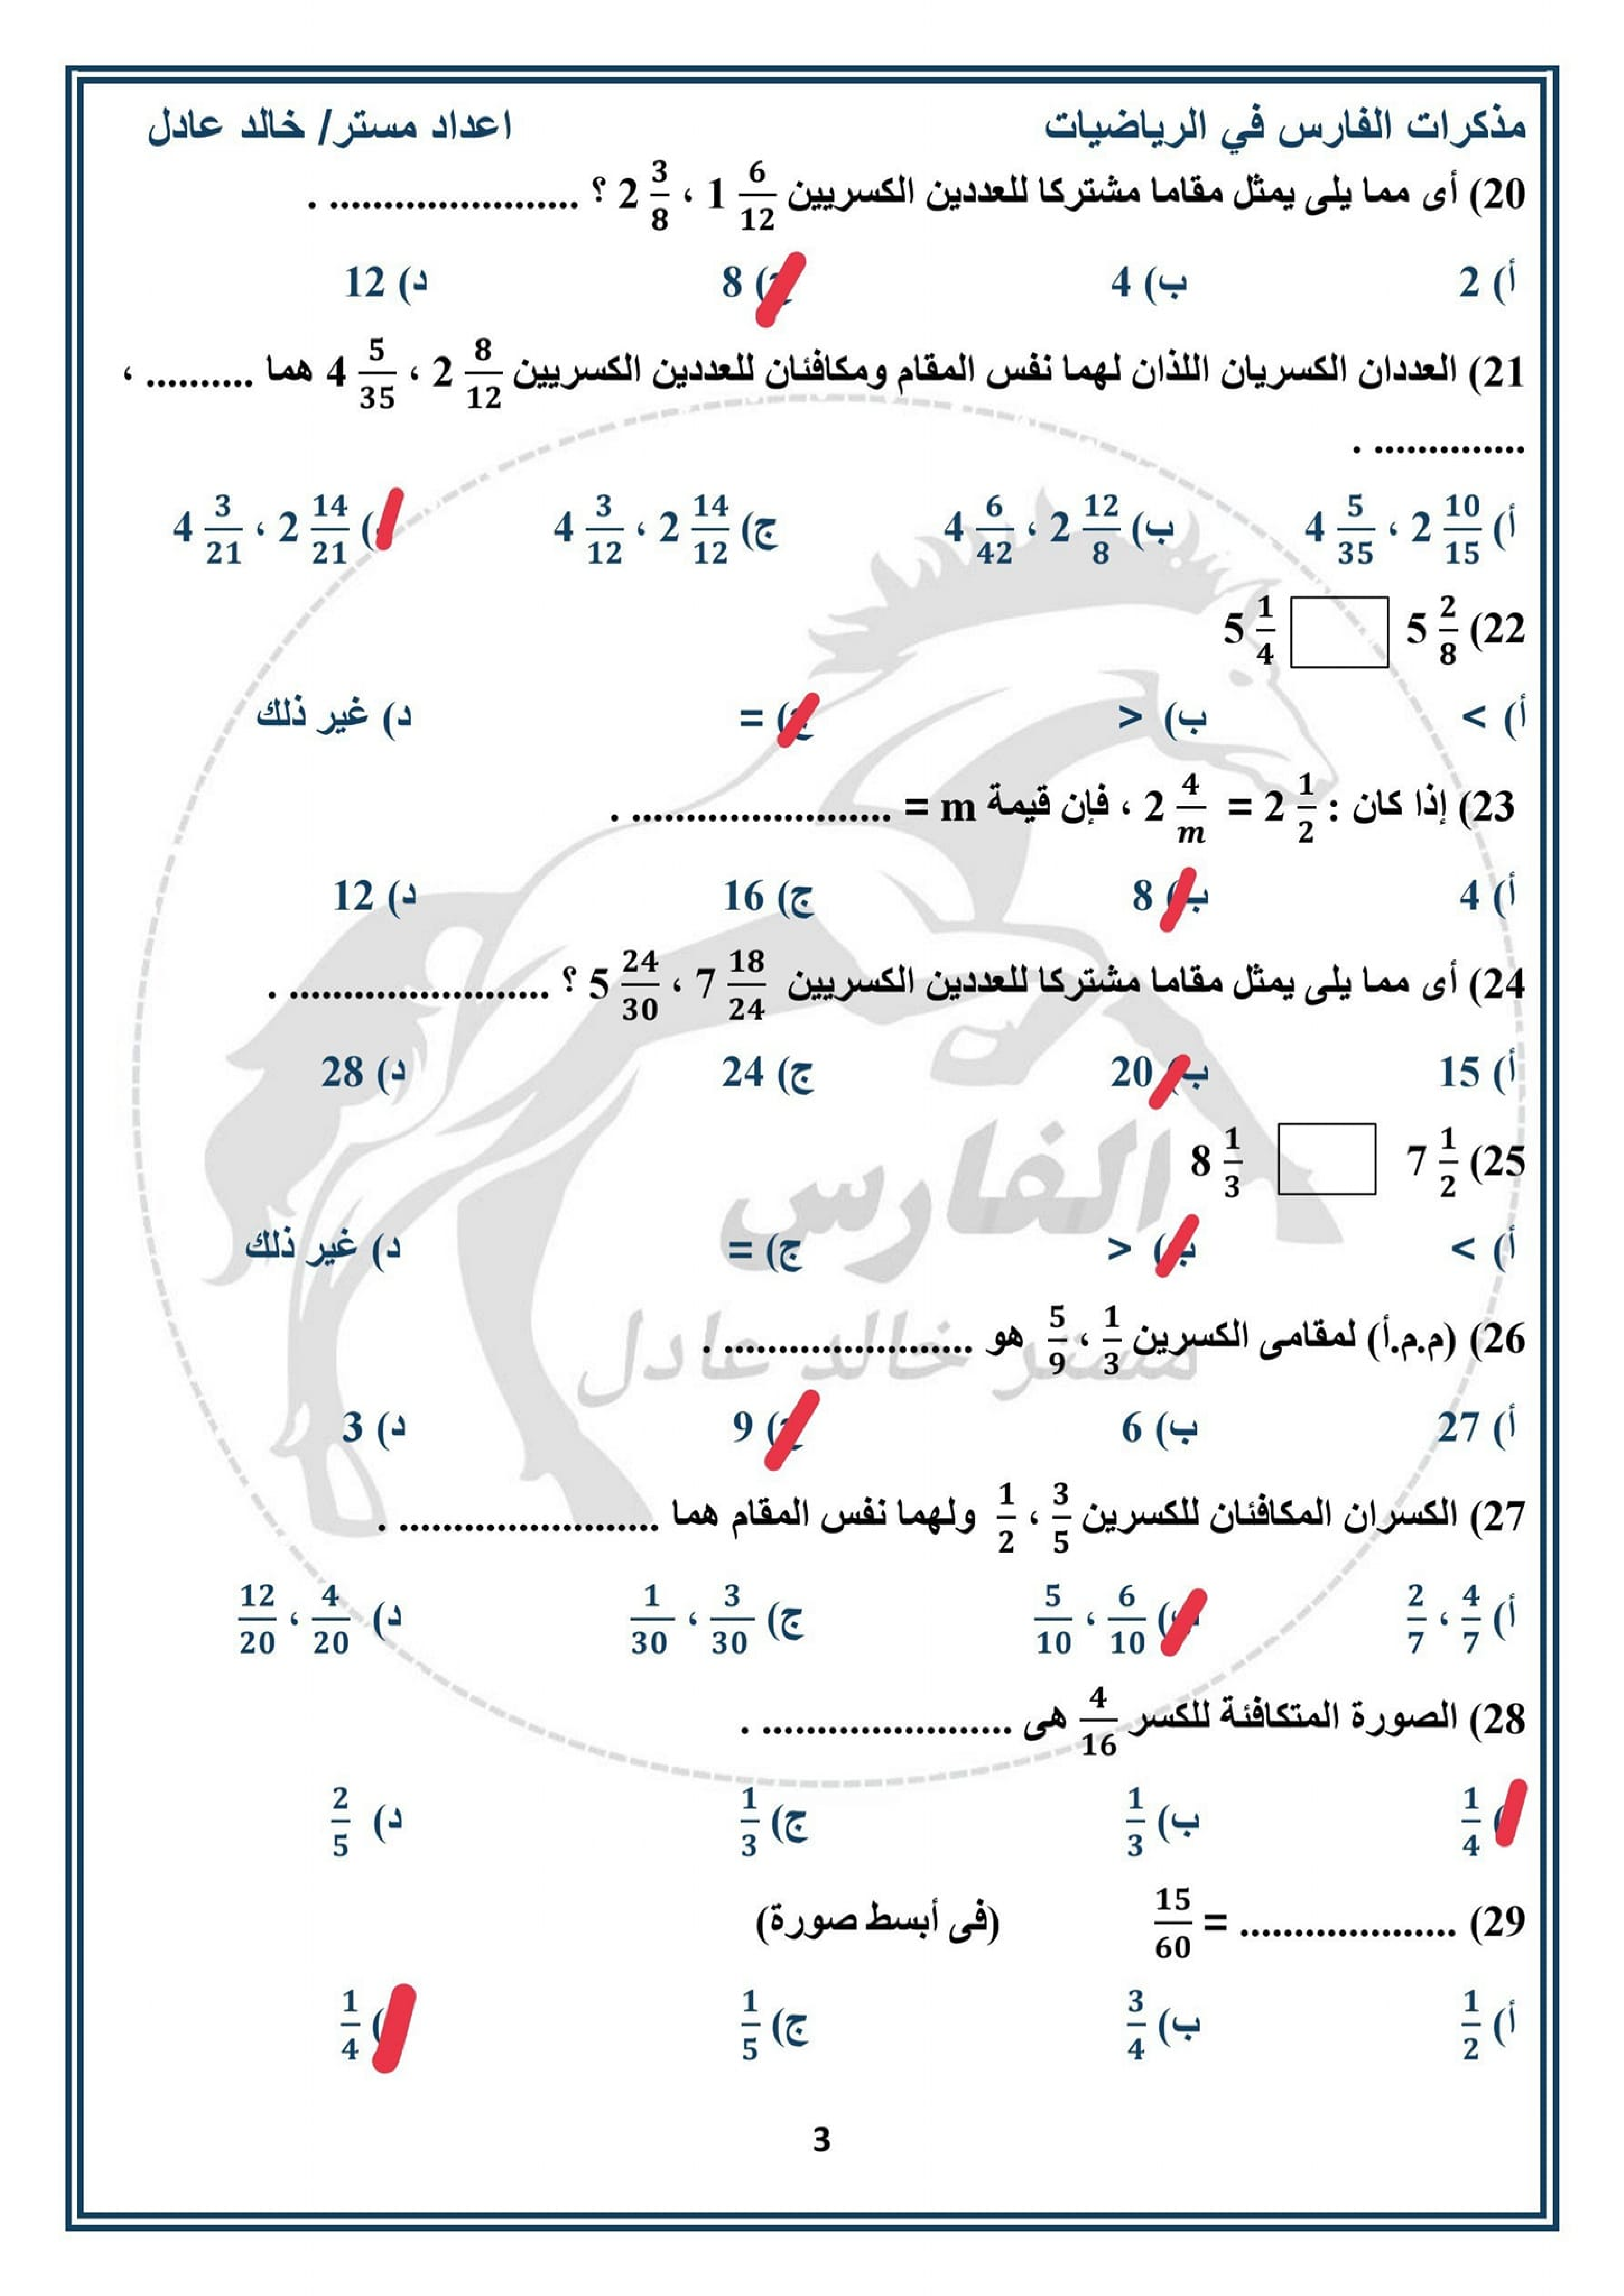 مذكرات الفارس في الرياضيات اعداد مستر/ خالد عادل
20) أى مما يلى يمثل مقاما مشتركا للعددين الكسريين 1 6/12 ، 2 3/8 ؟ ....................... .
أ) 2 ب) 4 ج) 8 د) 12
21) العددان الكسريان اللذان لهما نفس المقام ومكافئان للعددين الكسريين 2 8/12 ، 4 5/35 هما .......... ،
.............. .
أ) 2 10/15 ، 4 5/35 ب) 2 12/8 ، 4 6/42 ج) 2 14/12 ، 4 3/12 ) 2 14/21 ، 4 3/21
22) 5 2/8 5 1/4
أ) > ب) < ج) = د) غير ذلك
23) إذا كان : 2 1/2 = 2 4/m ، فإن قيمة m = ........................ .
أ) 4 ب) 8 ج) 16 د) 12
24) أى مما يلى يمثل مقاما مشتركا للعددين الكسريين 7 18/24 ، 5 24/30 ؟ ........................ .
أ) 15 ب) 20 ج) 24 د) 28
25) 7 1/2 8 1/3
الفارس
أ) > ب) < ج) = د) غير ذلك
مستر خالد عادل
26) (م.م.أ) لمقامى الكسرين 1/3 ، 5/9 هو ....................... .
أ) 27 ب) 6 ج) 9 د) 3
27) الكسران المكافئان للكسرين 3/5 ، 1/2 ولهما نفس المقام هما ........................ .
أ) 4/7 ، 2/7 ب) 6/10 ، 5/10 ج) 3/30 ، 1/30 د) 4/20 ، 12/20
28) الصورة المتكافئة للكسر 4/16 هى ....................... .
) 1/4 ب) 1/3 ج) 1/3 د) 2/5
29) .................... = 15/60 (فى أبسط صورة)
أ) 1/2 ب) 3/4 ج) 1/5 ) 1/4
3